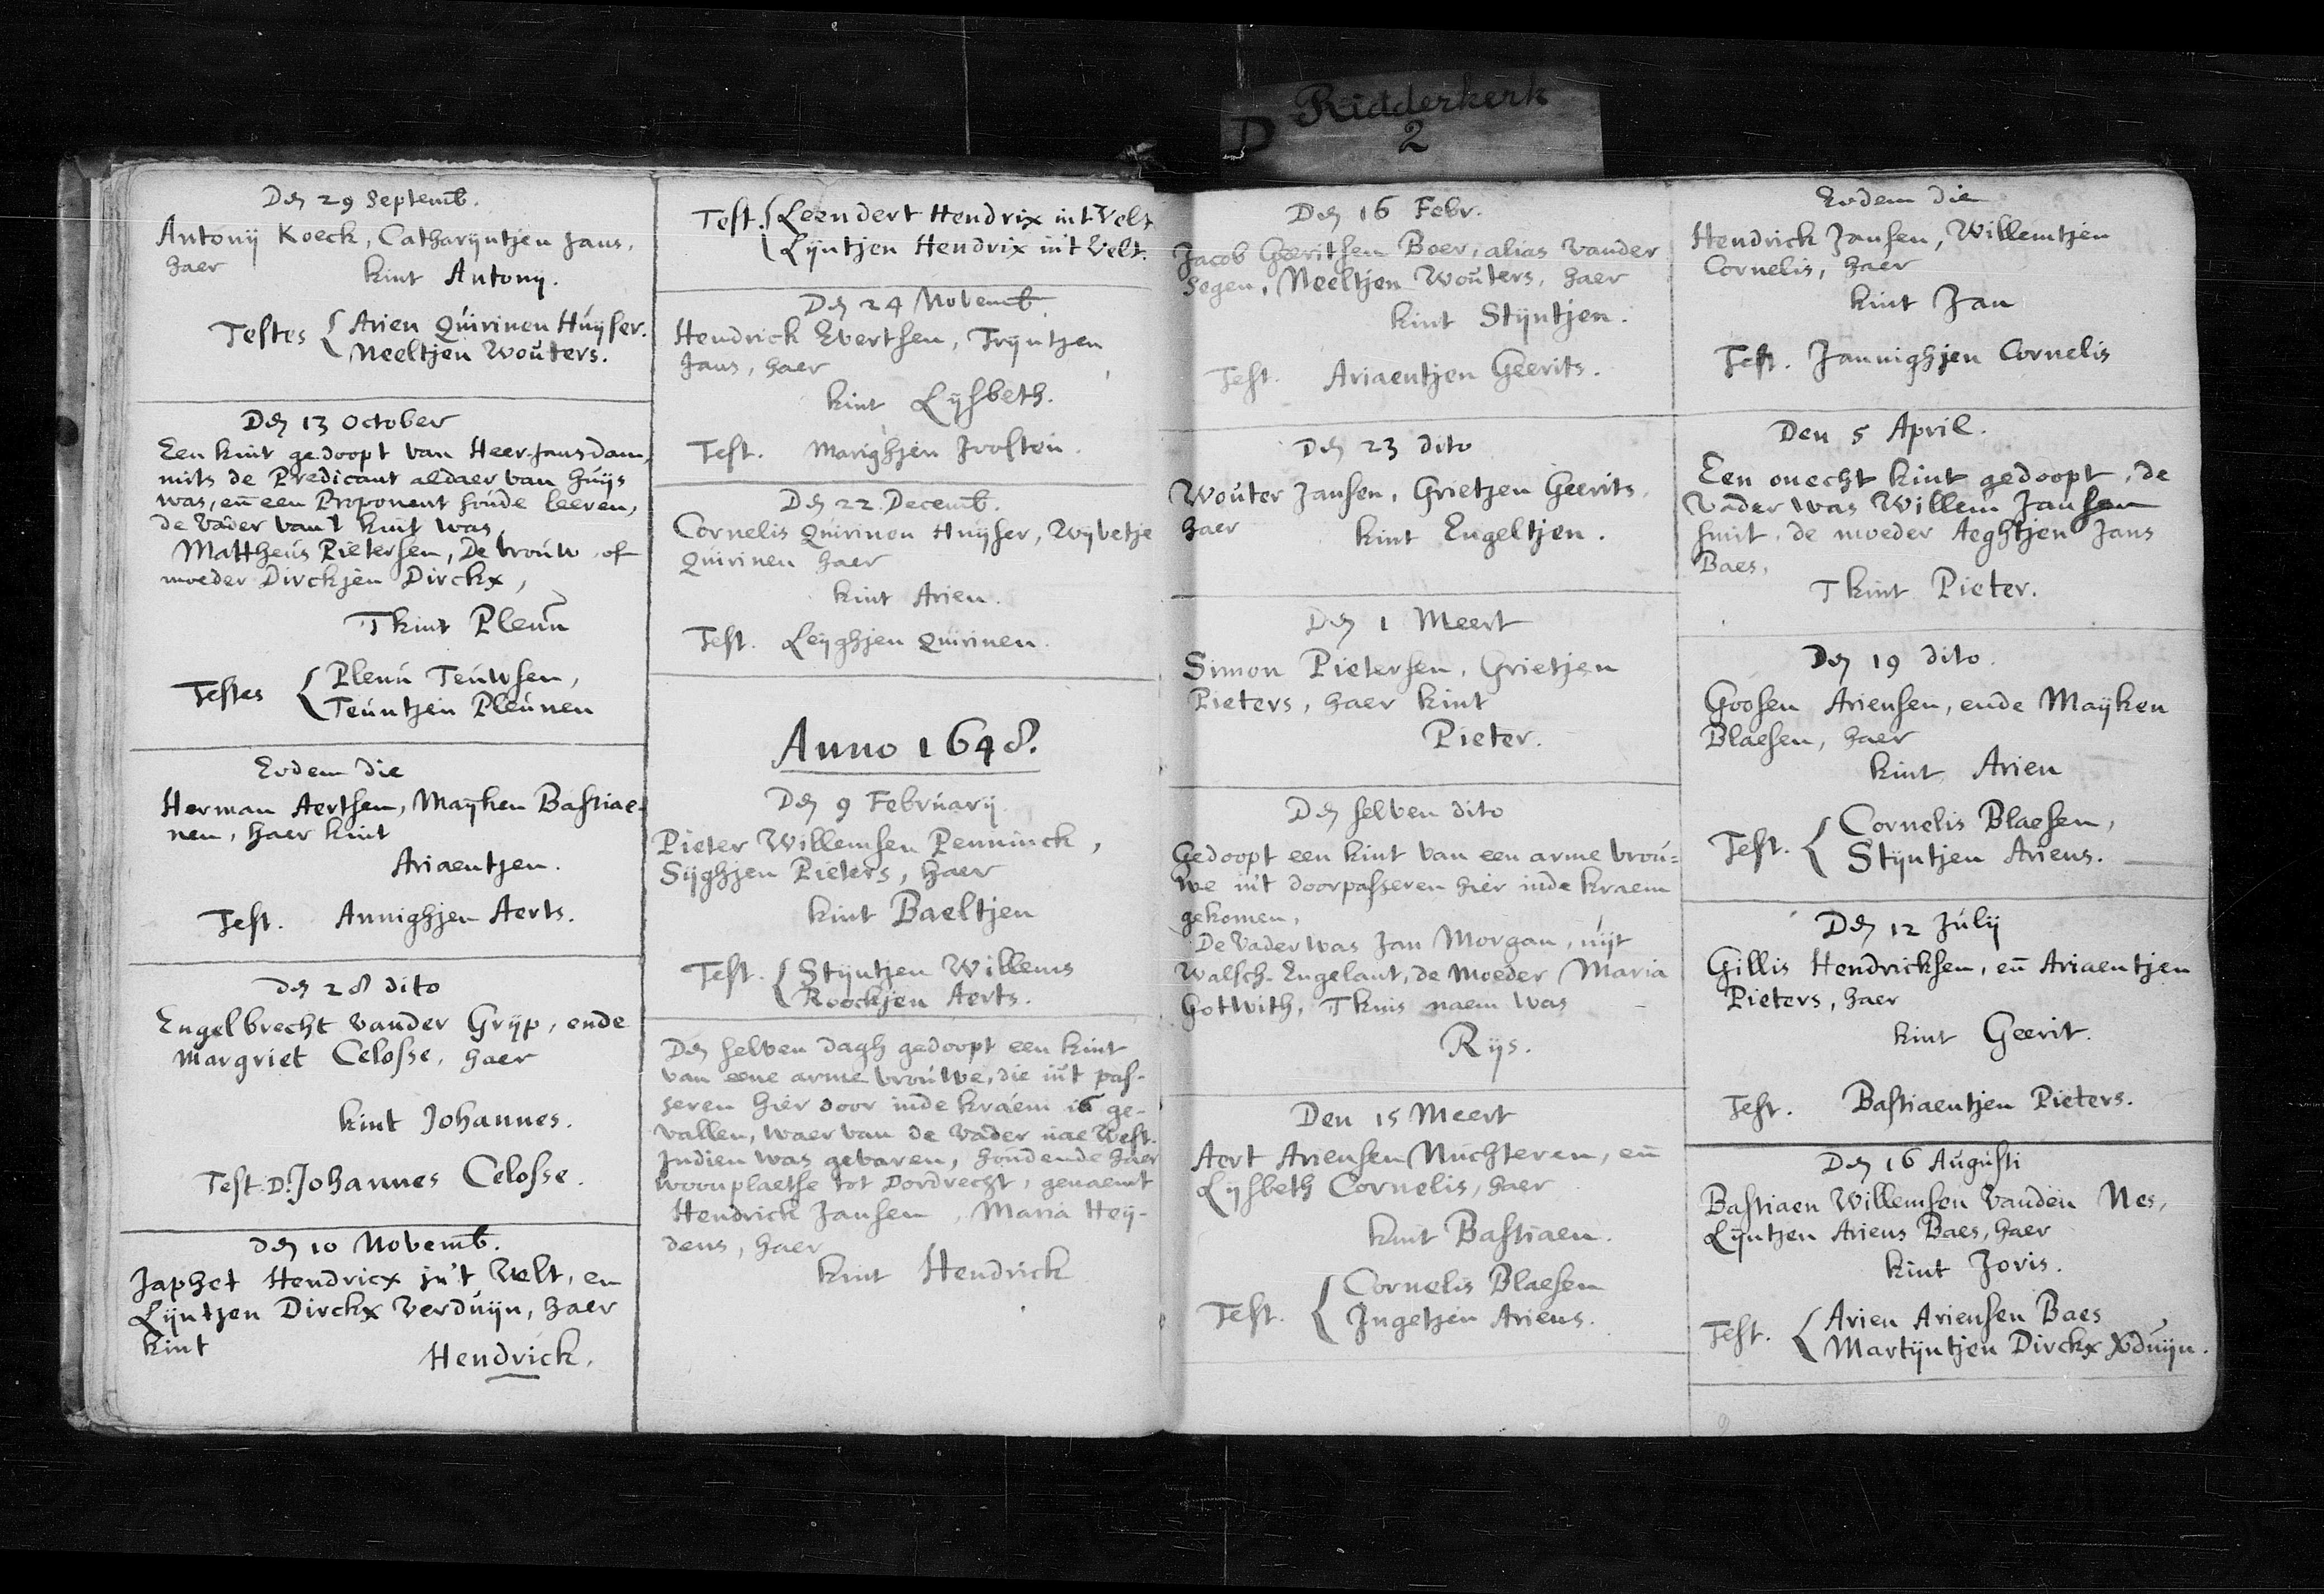 D Ridderkerk
2
Den 29 Septemb.
Antonij Koeck, Catharijntjen Jans,
haer
kint Antony.
Testes { Arien Quirinen Huijser.
Neeltjen Wouters.
Den 13 October
Een kint gedoopt van Heer-Jansdam,
mits de Predicant aldaer van huijs
was, en̄ een Proponent soude leeren,
de Vader van't kint was,
Mattheus Pietersen, De vrouw of
moeder Dirckjen Dirckx,
T kint Pleun
Testes { Pleun Teuwsen,
Teuntjen Pleunen
Eodem die
Herman Aertsen, Mayken Bastiae-
nen, haer kint
Ariaentjen.
Test. Annighjen Aerts.
den 28 dito
Engelbrecht vander Grijp, ende
Margriet Celosse, haer
kint Johannes.
Test. D. Johannes Celosse.
den 10 Novemb.
Japhet Hendricx in't Velt, en
Lijntjen Dirckx Verduijn, haer
kint
Hendrick.
Test. { Leendert Hendrix in't Velt
Lijntjen Hendrix in't Velt.
Den 24 Novemb.
Hendrick Evertsen, Trijntjen
Jans, haer
kint Lijsbeth.
Test. Marighjen Joosten.
Den 22 Decemb.
Cornelis Quirinen Huijser, Wijvetje
Quirinen haer
kint Arien.
Test. Leijghjen Quirinen.
Anno 1648.
Den 9 February
Pieter Willemsen Penninck,
Sijghjen Pieters, haer
kint Baeltjen
Test. { Stijntjen Willems
Roockjen Aerts.
Den selven dagh gedoopt een kint
van eene arme vrouwe, die int pas-
seren hier door inde kraem is ge-
vallen, waer van de vader nae West-
Indien was gevaren, houdende haer
woonplaetse tot Dordrecht, genaemt
Hendrick Jansen, Maria Heij-
dens, haer
kint Hendrick
Den 16 Febr.
Jacob Geeritsen Boer, alias vander
Segen, Neeltjen Wouters, haer
kint Stijntjen.
Test. Ariaentjen Geerits.
Den 23 dito
Wouter Jansen, Grietjen Geerits,
haer
kint Engeltjen.
Den 1 Meert
Simon Pietersen, Grietjen
Pieters, haer kint
Pieter.
Den selven dito
Gedoopt een kint van een arme vrou=
we in't doorpasseren hier inde kraem
gekomen,
De Vader was Jan Morgan, uijt
Walsch-Engelant, de Moeder Maria
Gotwith, T kints naem was
Rijs.
Den 15 Meert
Aert Ariensen Nuchteren, en̄
Lijsbeth Cornelis, haer
kint Bastiaen.
Test. { Cornelis Blaesen
Ingetjen Ariens.
Eodem die
Hendrick Jansen, Willemtjen
Cornelis, haer
kint Jan
Test. Jannighjen Cornelis
Den 5 April.
Een onecht kint gedoopt, de
Vader was Willem Jansen
smit, de moeder Aeghtjen Jans
Baes,
T kint Pieter.
Den 19 dito.
Goosen Ariensen, ende Mayken
Blaesen, haer
kint Arien
Test. { Cornelis Blaesen,
Stijntjen Ariens.
Den 12 Julij
Gillis Hendricksen, en̄ Ariaentjen
Pieters, haer
kint Geerit.
Test. Bastiaentjen Pieters.
Den 16 Augusti
Bastiaen Willemsen vanden Nes,
Lijntjen Ariens Baes, haer
kint Joris.
Test. { Arien Ariensen Baes
Martijntjen Dirckx Vduijn.